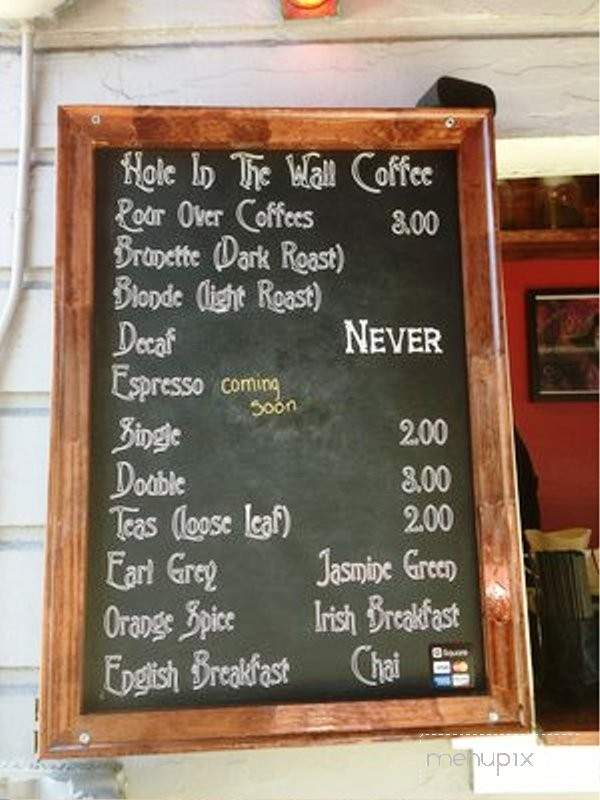 Hole In The Wall Coffee
Pour Over Coffees 3.00
Brunette (Dark Roast)
Blonde (light Roast)
Decaf NEVER
Espresso coming soon
Single 2.00
Double 3.00
Teas (loose leaf) 2.00
Earl Grey Jasmine Green
Orange Spice Irish Breakfast
English Breakfast Chai
Square
VISA
menupix